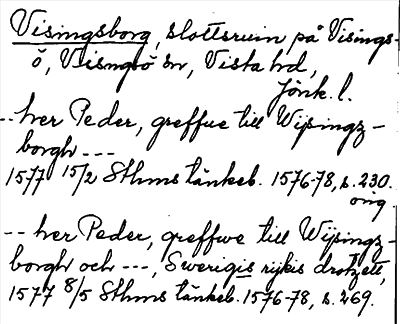 Visingsborg, slottsruin på Visings-
ö, Visingsö sn, Vista hd,
Jönk. l.
-- her Peder, greffue till Wijsingz-
borgh ---
1577 15/2 Sthms tänkeb. 1576-78, s. 230.
orig.
-- her Peder, greffwe till Wijsingz-
borgh och ---, Swerigis rijkis drotzett,
1577 8/5 Sthms tänkeb. 1576-78, s. 269.